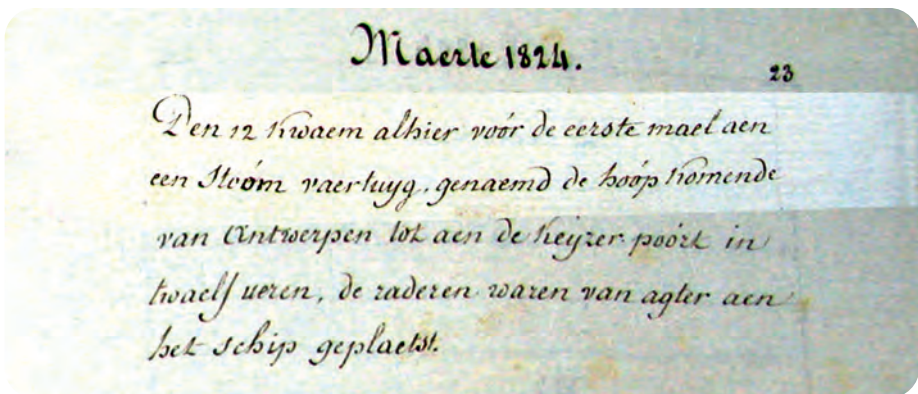 Maerte 1824.
23
Den 12 kwaem alhier voór de eerste mael aen
een stoóm vaertuyg, genaemd de hoóp komende
van Antwerpen tot aen de keyzer poórt in
twaelf ueren, de raderen waren van agter aen
het schip geplaetst.